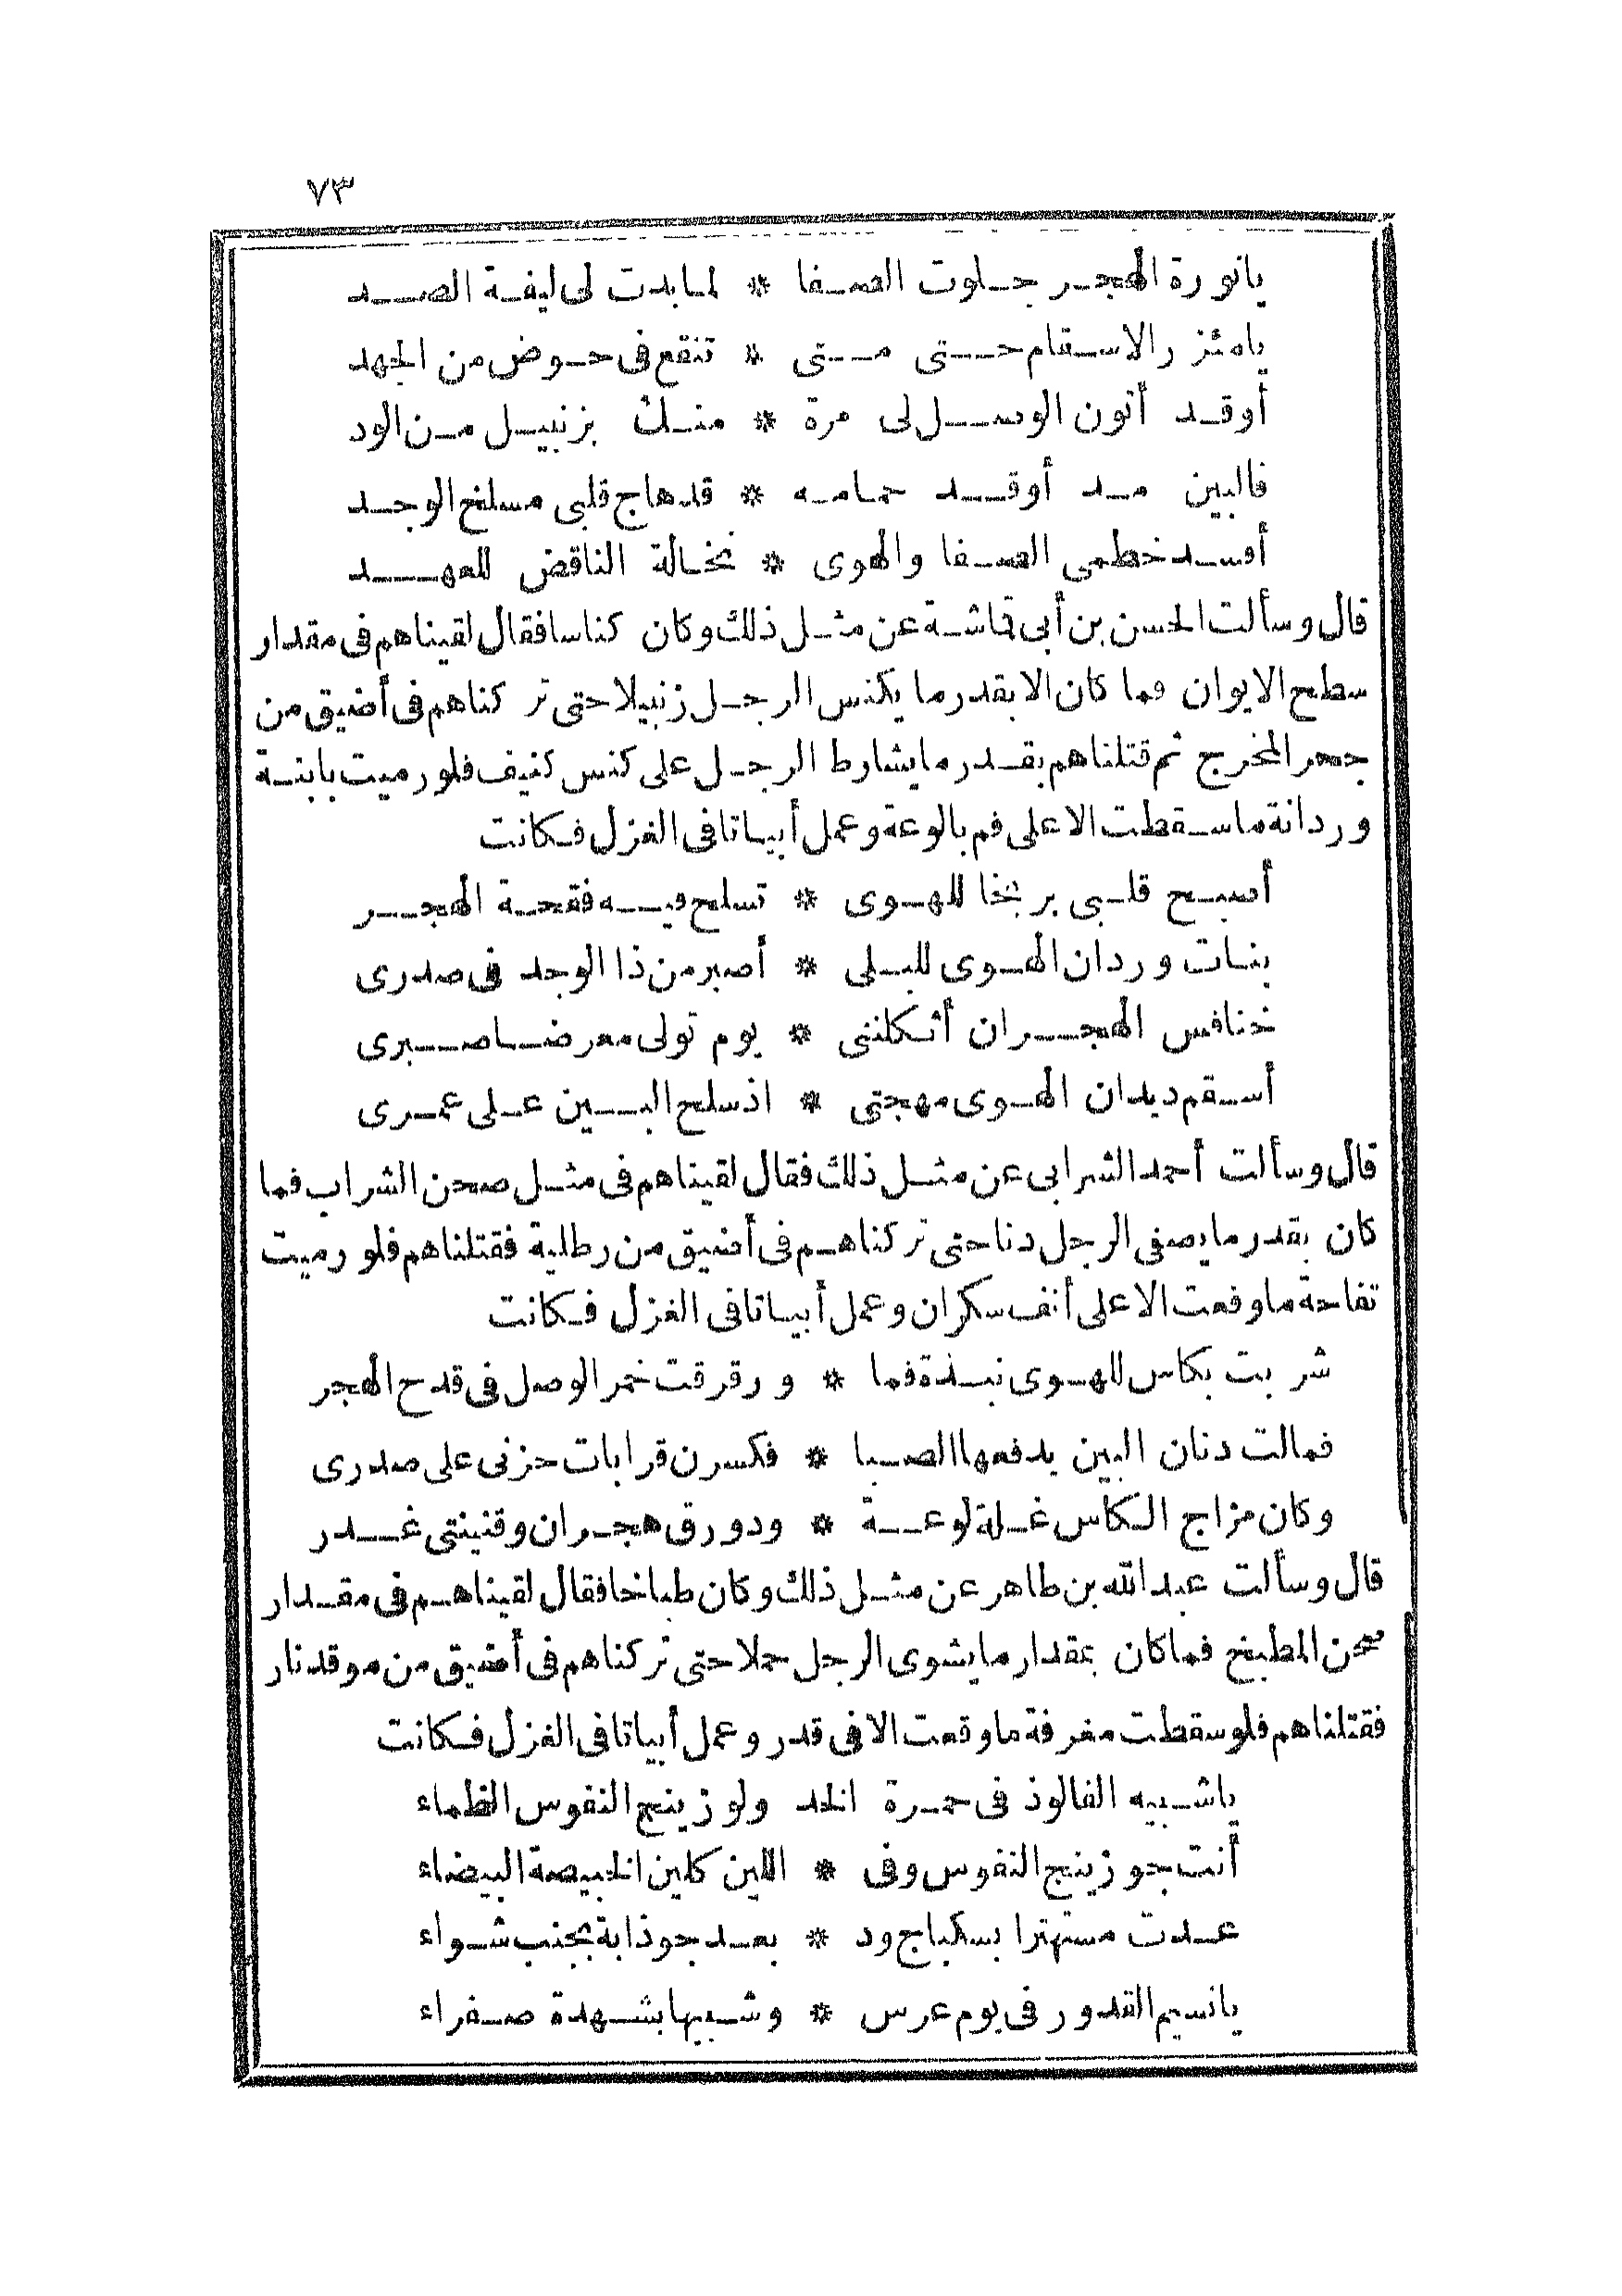 ٧٣
يانورة الهجر جلوت الصفا * لما بدت لى ليفة الصد
يامئزر الاسقام حتى متى * تنقع فى حوض من الجهد
أوقد أتون الوصل لى مرة * منك بزنبيل من الود
فالبين مد أوقد حمامه * قد هاج قلبى مسلخ الوجد
أفسد خطمى الصفا والهوى * نخالة الناقض للعهد
قال وسألت الحسن بن أبى قماشة عن مثل ذلك وكان كناسا فقال لقيناهم فى مقدار
سطح الايوان فما كان الا بقدر ما يكنس الرجل زنبيلا حتى تركناهم فى أضيق من
جحر المخرج ثم قتلناهم بقدر مايشارط الرجل على كنس كنيف فلو رميت بابنة
وردانة ماسقطت الا على فم بالوعة وعمل أبياتا فى الغزل فكانت
أصبح قلبى بربخا للهوى * تسلح فيه فقحة الهجر
بنات وردان الهوى للبلى * أصبر من ذا الوجد فى صدرى
خنافس الهجران أثكلننى * يوم تولى معرضا صبرى
أسقم ديدان الهوى مهجتى * اذ سلح البين على عمرى
قال وسألت أحمد الشرابى عن مثل ذلك فقال لقيناهم فى مثل صحن الشراب فما
كان بقدر ما يصفى الرجل دنا حتى تركناهم فى أضيق من رطلية فقتلناهم فلو رميت
تفاحة ماوقعت الا على أنف سكران وعمل أبياتا فى الغزل فكانت
شربت بكاس للهوى نبذة فما * ورقرقت خمر الوصل فى قدح الهجر
فمالت دنان البين يدفعها الصبا * فكسرن قرابات حزنى على صدرى
وكان مزاج الكاس غلة لوعة * ودورق هجران وقنينتى غدر
قال وسألت عبد الله بن طاهر عن مثل ذلك وكان طباخا فقال لقيناهم فى مقدار
صحن المطبخ فما كان بمقدار ما يشوى الرجل حملا حتى تركناهم فى أضيق من موقد نار
فقتلناهم فلو سقطت مغرفة ماوقعت الا فى قدر وعمل أبياتا فى الغزل فكانت
ياشبيه الفالوذ فى حمرة الخد ولوزينج النفوس الظماء
أنت جوزينج النفوس وفى * اللين كلين الخبيصة البيضاء
عدت مستهترا بسكباج ود * بعد جوذابة بجنب شواء
يانسيم القدور فى يوم عرس * وشبيها بشهدة صفراء